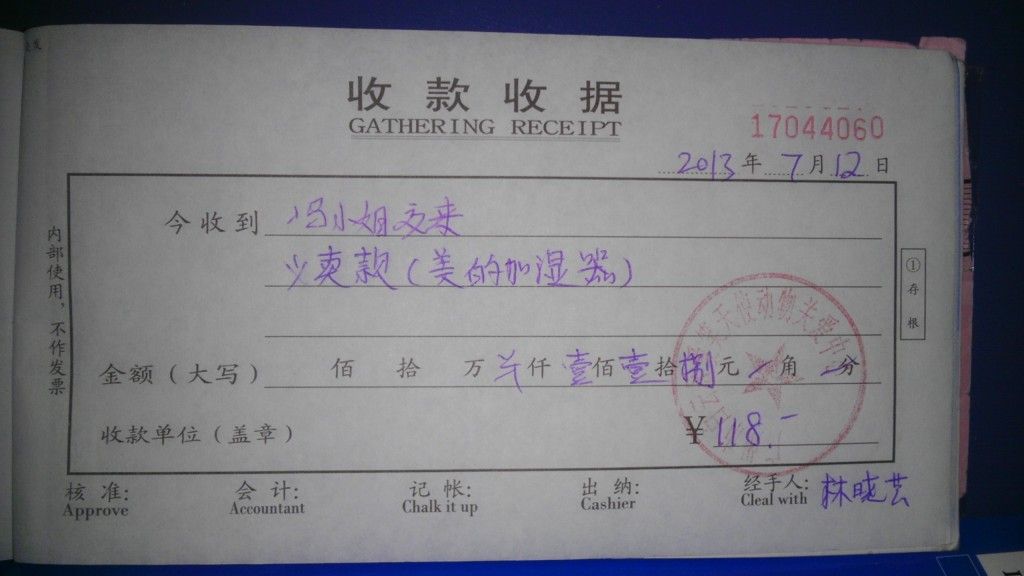 收款收据
GATHERING RECEIPT
17044060
2013年7月12日
今收到 冯小姐交来
义卖款(美的加湿器)
金额(大写) 佰 拾 万 仟壹佰壹拾捌元 角 分
收款单位(盖章) ¥118.-
核准: 会计: 记帐: 出纳: 经手人: 林晓芸
Approve Accountant Chalk it up Cashier Cleal with
内部使用,不作发票
①存根
天使动物关爱中